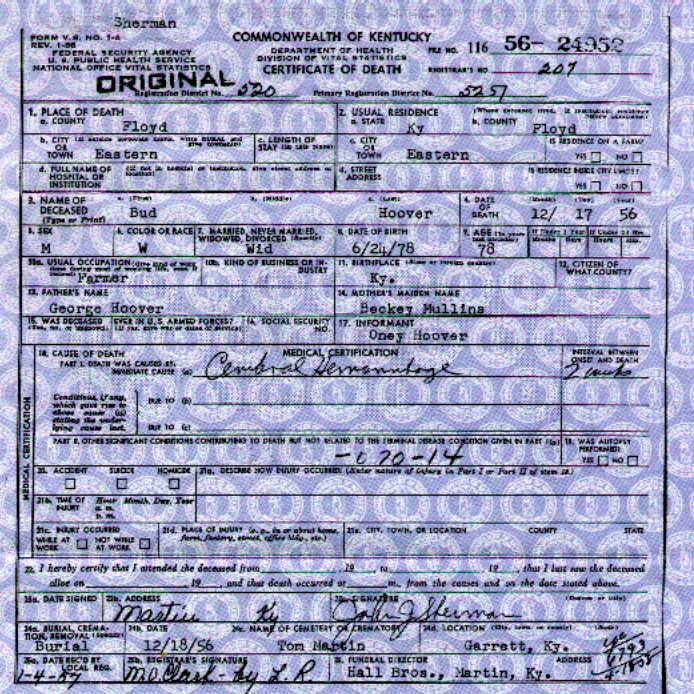 Sherman
FORM V.S. NO. 1-A
COMMONWEALTH OF KENTUCKY
FEDERAL SECURITY AGENCY
DEPARTMENT OF HEALTH
FILE NO. 116 56- 24952
U. S. PUBLIC HEALTH SERVICE
DIVISION OF VITAL STATISTICS
NATIONAL OFFICE VITAL STATISTICS
CERTIFICATE OF DEATH
REGISTRAR'S NO. 207
ORIGINAL
Registration District No. 520
Primary Registration District No. 5257
1. PLACE OF DEATH
2. USUAL RESIDENCE
a. COUNTY
Floyd
a. STATE
Ky
b. COUNTY
Floyd
b. CITY OR TOWN
Eastern
c. LENGTH OF STAY
c. CITY OR TOWN
Eastern
IS RESIDENCE ON A FARM?
YES NO
d. FULL NAME OF HOSPITAL OR INSTITUTION
d. STREET ADDRESS
IS RESIDENCE INSIDE CITY LIMITS?
YES NO
3. NAME OF DECEASED
(Type or Print)
a. (First)
b. (Middle)
c. (Last)
4. DATE OF DEATH
(Month) (Day) (Year)
Bud
Hoover
12/ 17 56
5. SEX
6. COLOR OR RACE
7. MARRIED, NEVER MARRIED, WIDOWED, DIVORCED
8. DATE OF BIRTH
9. AGE
M
W
Wid
6/24/78
78
10a. USUAL OCCUPATION
10b. KIND OF BUSINESS OR INDUSTRY
11. BIRTHPLACE
12. CITIZEN OF WHAT COUNTY?
Farmer
Ky.
13. FATHER'S NAME
14. MOTHER'S MAIDEN NAME
George Hoover
Beckey Mullins
15. WAS DECEASED EVER IN U.S. ARMED FORCES?
16. SOCIAL SECURITY NO.
17. INFORMANT
Oney Hoover
18. CAUSE OF DEATH
MEDICAL CERTIFICATION
INTERVAL BETWEEN ONSET AND DEATH
PART I. DEATH WAS CAUSED BY:
IMMEDIATE CAUSE (a)
Cerebral Hemorrhage
2 weeks
Conditions, if any, which gave rise to above cause (a) stating the underlying cause last.
DUE TO (b)
DUE TO (c)
MEDICAL CERTIFICATION
PART II. OTHER SIGNIFICANT CONDITIONS CONTRIBUTING TO DEATH BUT NOT RELATED TO THE TERMINAL DISEASE CONDITION GIVEN IN PART I(a)
19. WAS AUTOPSY PERFORMED?
YES NO
ACCIDENT SUICIDE HOMICIDE
DESCRIBE HOW INJURY OCCURRED. (Enter nature of injury in Part I or Part II of item 18.)
21b. TIME OF INJURY
Hour Month, Day, Year
a. m.
p. m.
21c. INJURY OCCURRED
WHILE AT WORK
NOT WHILE AT WORK
21d. PLACE OF INJURY (e. g., in or about home, farm, factory, street, office bldg., etc.)
21e. CITY, TOWN, OR LOCATION
COUNTY
STATE
22. I hereby certify that I attended the deceased from 19 , to 19 , that I last saw the deceased
alive on 19 , and that death occurred at m., from the causes and on the date stated above.
23a. DATE SIGNED
23b. ADDRESS
SIGNATURE
Martin Ky
24a. BURIAL, CREMATION, REMOVAL
24b. DATE
24c. NAME OF CEMETERY OR CREMATORY
24d. LOCATION
Burial
12/18/56
Tom Martin
Garrett, Ky.
25a. DATE REC'D BY LOCAL REG.
25b. REGISTRAR'S SIGNATURE
FUNERAL DIRECTOR
ADDRESS
Hall Bros., Martin, Ky.